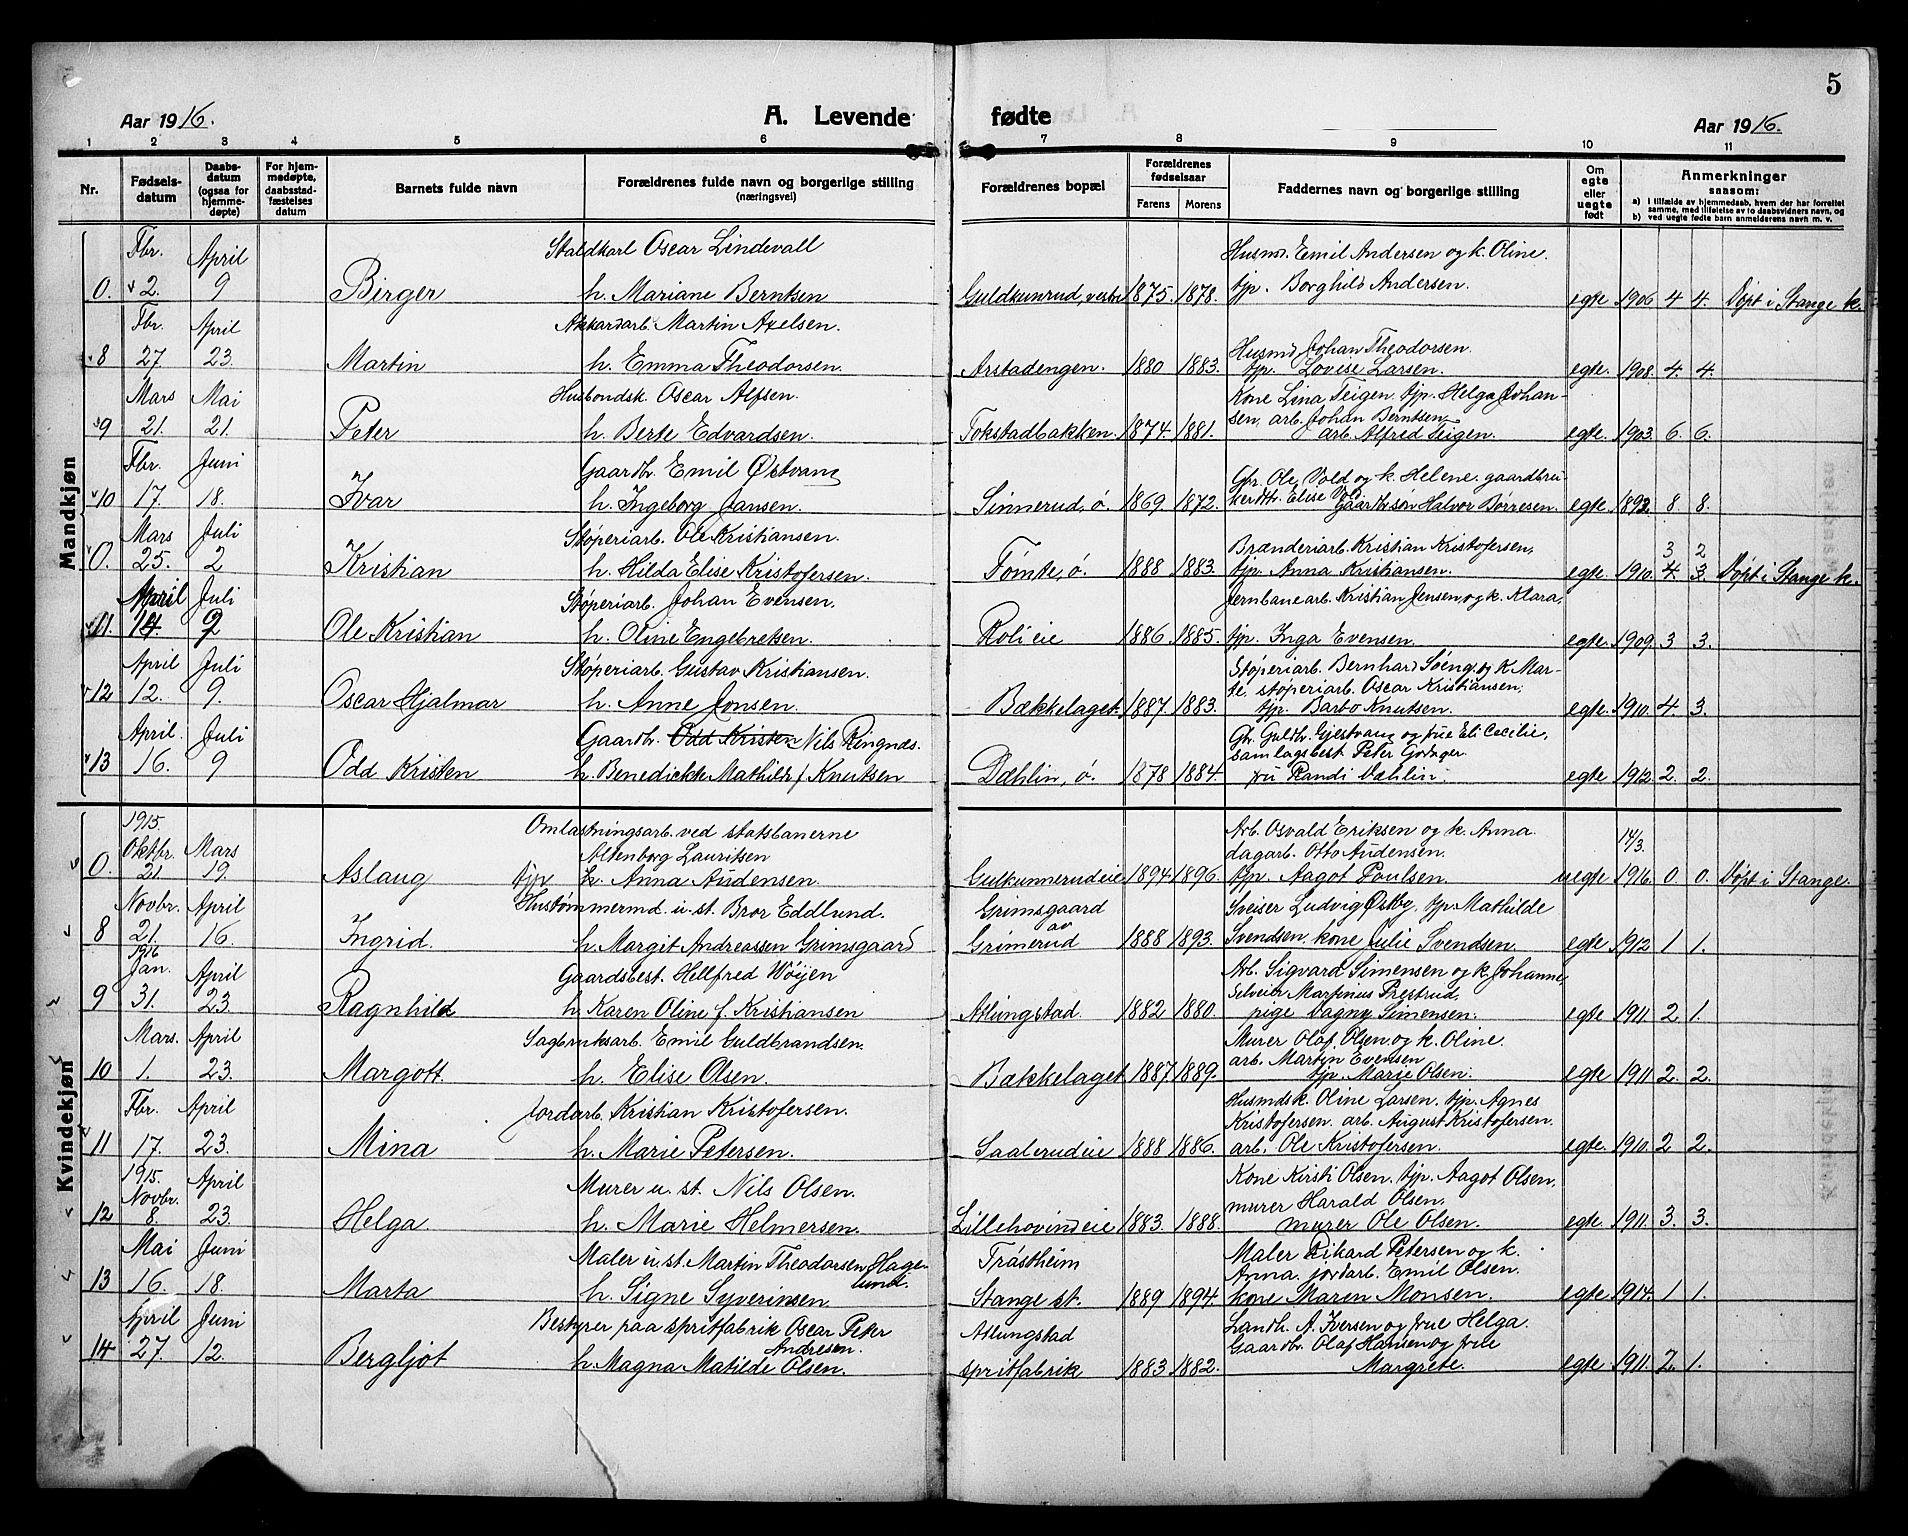 5
Aar 1916.
A. Levende fødte
Aar 1916.
1 2 3 4 5 6 7 8 9 10 11
Nr.
Fødsels-datum
Daabs-datum (ogsaa for hjemme-døpte)
For hjem-medøpte, daabsstad-fæstelses datum
Barnets fulde navn
Forældrenes fulde navn og borgerlige stilling (næringsvei)
Forældrenes bopæl
Forældrenes fødselsaar
Farens Morens
Faddernes navn og borgerlige stilling
Om egte eller uegte født
Anmerkninger saasom:
a) I tilfælde av hjemmedaab, hvem der har forrettet samme, med tilføielse av to daabsvidners navn, og
b) ved uegte fødte barn anmelderens navn m. v.
Mandkjøn
Fbr. April Staldkarl Oscar Lindevall Husmd. Emil Andersen og k. Oline.
0. 2. 9 Birger h. Mariane Berntsen Guldkunrud, vestre 1875. 1878. tjp. Borghild Andersen. egte 1906 4 4. Døpt i Stange k.
Fbr. April Akkordarb. Martin Axelsen. Husmd Johan Theodorsen.
8 27. 23. Martin h. Emma Theodorsen. Arstadengen. 1880 1883. tjp. Lovise Larsen. egte. 1908. 4. 4.
Mars Mai Husbondsk. Oscar Alfsen. Kone Lina Teigen. tjp. Helga Johan-
sen, arb. Johan Berntsen
9 21. 21. Peter h. Berte Edvardsen. Tokstadbakken 1874. 1881. arb. Alfred Teigen. egte. 1903. 6. 6.
Fbr. Juni Gaardbr. Emil Østvang Gbr. Ole Vold og k. Helene. gaardbru-
kerdtr. Elise Vold
10 17. 18. Ivar h. Ingeborg Jansen. Sinnerud, ø. 1869. 1872. Gaardbr.søn Halvor Børresen. egte 1892. 8. 8.
Mars Juli Støperiarb. Ole Kristiansen. Brænderiarb. Kristian Kristofersen, 3 2
0. 25. 2 Kristian h. Hilda Elise Kristofersen. Tømte, ø. 1888 1883. tjp. Anna Kristiansen. egte 1910. 4. 3. Døpt i Stange k.
April Juli Støperiarb. Johan Evensen. Jernbanearb. Kristian Jensen, og k. Klara,
11. 14. 2 Ole Kristian h. Oline Engebretsen. Roli eie 1886 1885. tjp. Inga Evensen. egte. 1909. 3 3.
April Juli Støperiarb. Gustav Kristiansen. Støperiarb. Bernhard Søeng, og k. Mar-
te, støperiarb. Oscar Kristiansen.
12 12. 9. Oscar Hjalmar h. Anne Jonsen. Bækkelaget. 1887. 1883. tjp. Barbo Knutsen. egte. 1910. 4. 3.
April. Juli Gaardbr. Odd Kristen Nils Ringnes. Gbr. Guldbr. Gjestvang og frue Eli Cecilie,
samlagsbest. Peter
13 16. 9 Odd Kristen h. Benedickte Mathilde f. Knutsen Dæhlin, ø. 1878 1884. fru Randi Dæhlin. egte. 1912. 2. 2.
Kvindekjøn
1915. Omlastningsarb. ved statsbanerne Arb. Osvald Eriksen og k. Anna. 14/3.
Oktbr. Mars Altenborg Lauritsen dagarb. Otto Audensen.
0. 21 19. Aslaug tjp. h. Anna Audensen. Gulkunnerudeie 1894 1896. tjp. Aagot Poulsen. uegte 1916. 0 0. Døpt i Stange.
Novbr. April Hustømmermd. u. st. Bror Eddlund. Grimsgaard Sveiser Ludvig Østby, tjp. Mathilde
8 21. 16. Ingrid. h. Margit Andreassen Grimsgaard av Grimerud 1888 1893. Svendsen, kone Julie Svendsen. egte 1912 1 1.
1916
Jan. April Gaardsbest. Hellfred Wøijen Arb. Sigvard Simensen og k. Johanne,
Selveier Martinius Prestrud,
9 31. 23. Ragnhild h. Karen Oline f. Kristiansen Atlungstad. 1882 1880. pige Dagny Simensen. egte 1911. 2 1.
Mars. April Sagbruksarb. Emil Guldbrandsen. Murer Olaf Olsen og k. Oline.
arb. Martin Evensen
10 1. 23. Margott. h. Elise Olsen. Bækkelaget 1887 1889. tjp. Marie Olsen. egte 1911 2. 2.
Fbr. April Jordarb. Kristian Kristofersen. Husmdsk. Oline Larsen. tjp. Agnes
Kristofersen. arb. August Kristofersen.
11 17. 23. Mina h. Marie Petersen. Saalerudeie 1888 1886. arb. Ole Kristofersen. egte. 1910. 2 2.
1915. April Murer u. st. Nils Olsen. Kone Kirsti Olsen. tjp. Aagot Olsen,
Novbr. murer Harald Olsen.
12 8. 23. Helga h. Marie Helmersen. Lillehovindeie 1883. 1888. murer Ole Olsen. egte. 1911. 3. 3.
Mai Juni Maler u. st. Martin Theodorsen Hage-lund. Trøstheim Maler Rikard Petersen og k.
Anna. jordarb. Emil Olsen.
13 16. 18. Marta h. Signe Syverinsen. Stange st. 1889 1894. kone Maren Monsen. egte 1914. 1 1.
April Juni Bestyrer paa spritfabrik Oscar Peter Andresen. Atlungstad Landh. A. Iversen og frue Helga.
Gaardbr. Olaf Hansen og frue
14 27. 12. Bergljot h. Magna Matilde Olsen. spritfabrik 1883 1882. Margrete. egte. 1911. 2. 1.